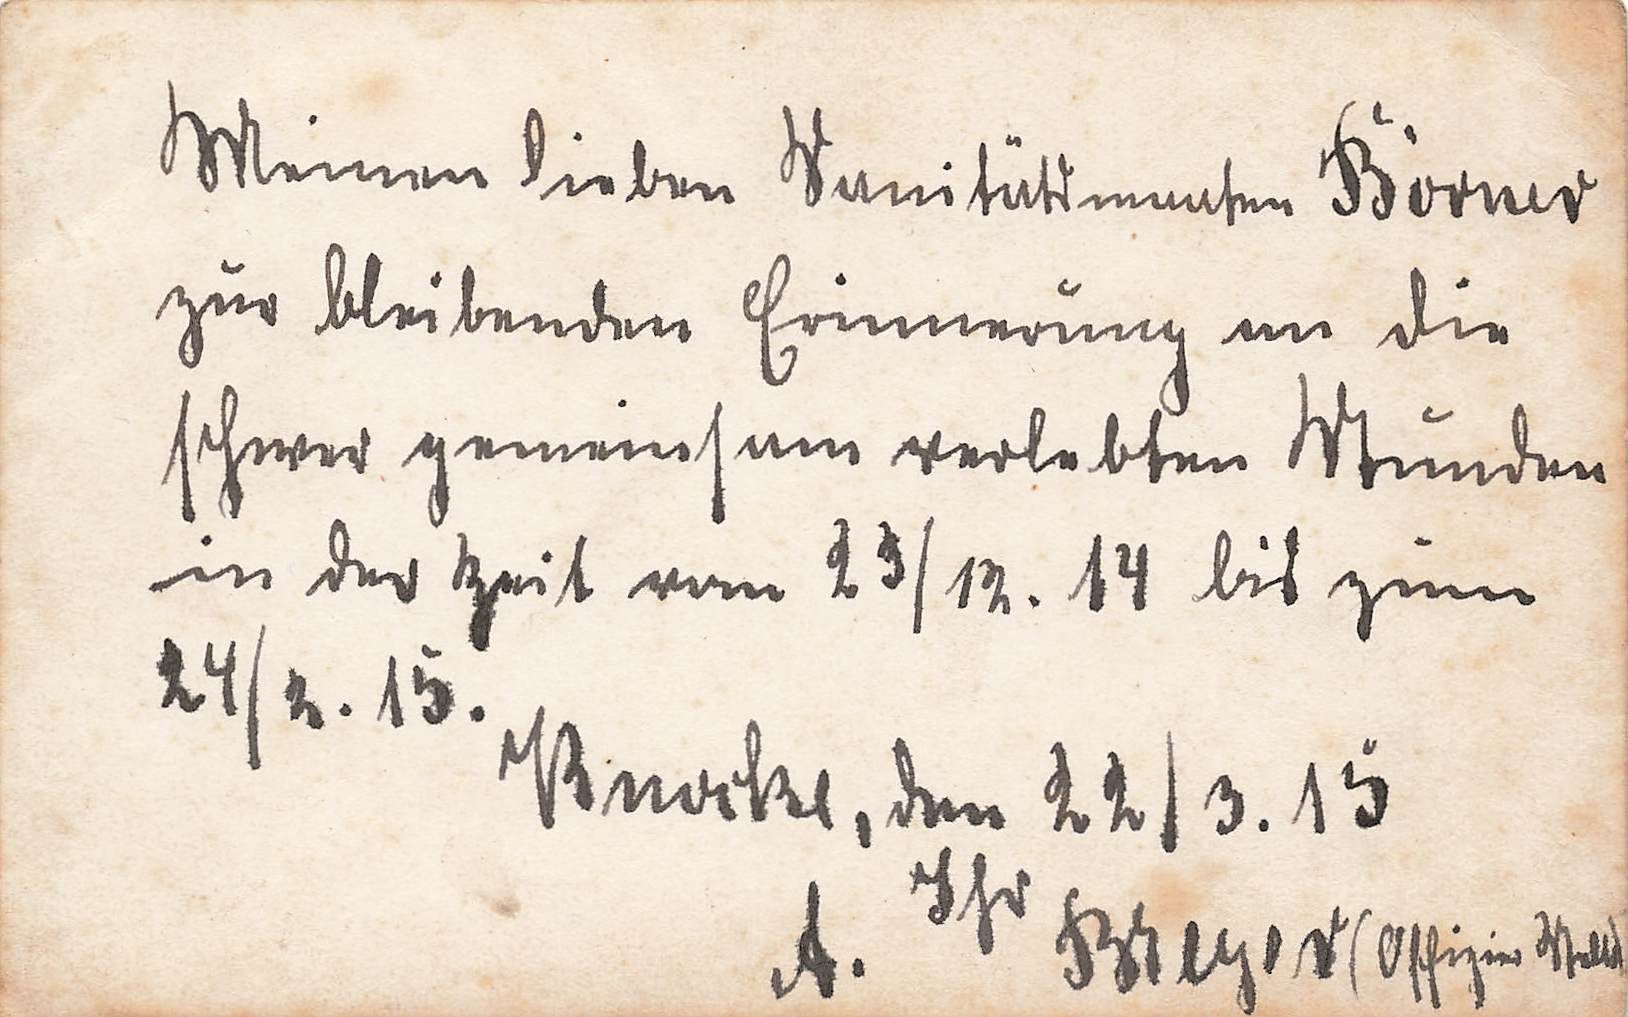 Meinen lieben Sanitätsmaaten Börner
zur bleibenden Erinnerung an die
schwer gemeinsam verlebten Stunden
in der Zeit vom 23/12. 14 bis zum
24/2. 15.
Knocke, den 22/3. 15
Ihr
A. (Offizier